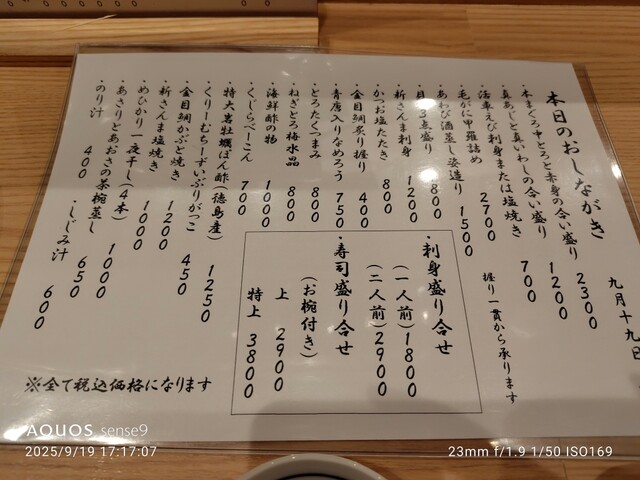 本日のおしながき
九月十九日
・本まぐろ中とろと赤身の合い盛り 2300
・真あじと真いわしの合い盛り 1200
・活車えび刺身または塩焼き 700
握り一貫から承ります
・毛がに甲羅詰め 2700
・あわび酒蒸し姿造り 1500
3点盛り 1800
・新さんま刺身 1200
・かつお塩たたき 800
・金目鯛炙り握り 400
・青唐入りなめろう 750
・とろたくつまみ 800
・ねぎとろ梅水晶 800
・海鮮酢の物 1000
・くじらべーこん 700
・特大岩牡蠣ぽん酢(徳島産) 1250
・くりーむちーずいぶりがっこ 450
・金目鯛かぶと焼き 1200
・新さんま塩焼き 1000
・めひかり一夜干し(4本) 1000
・あさりとあおさの茶椀蒸し 650
・のり汁 400
・しじみ汁 600
・刺身盛り合せ
(一人前)1800
(二人前)2900
・寿司盛り合せ
(お椀付き)
上 2900
特上 3800
※全て税込価格になります
AQUOS sense9
2025/9/19 17:17:07
23mm f/1.9 1/50 ISO169